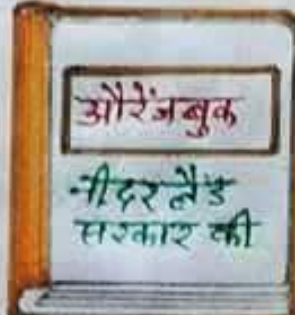 औरेंजबुक
नीदरलैंड
सरकार की